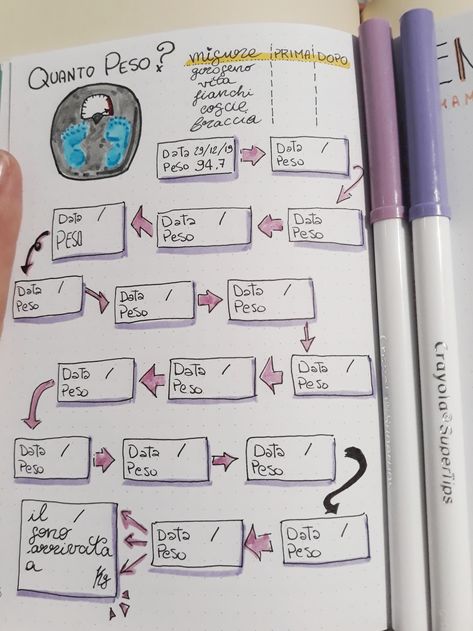 QUANTO PESO?
misure PRIMA DOPO
giroseno
vita
fianchi
coscie
braccia
Data 29/12/19
Peso 94.7
Data /
Peso
Data /
PESO
Data /
Peso
Data /
Peso
Data /
Peso
Data /
Peso
Data /
Peso
Data /
Peso
Data /
Peso
Data /
Peso
Data /
Peso
Data /
Peso
Data /
Peso
il /
sono
arrivata
a Kg
Data /
Peso
Data /
Peso
Crayola SuperTips
EN